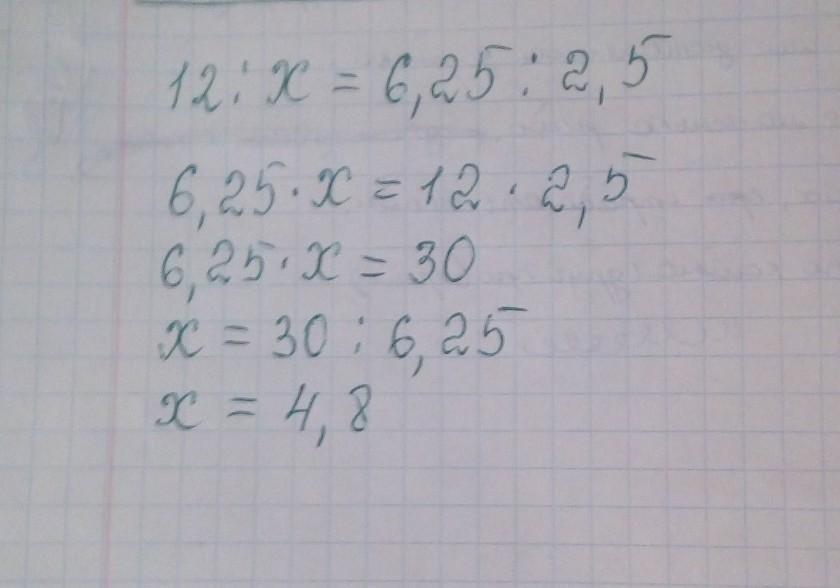 12 : x = 6,25 : 2,5
6,25 · x = 12 · 2,5
6,25 · x = 30
x = 30 : 6,25
x = 4,8